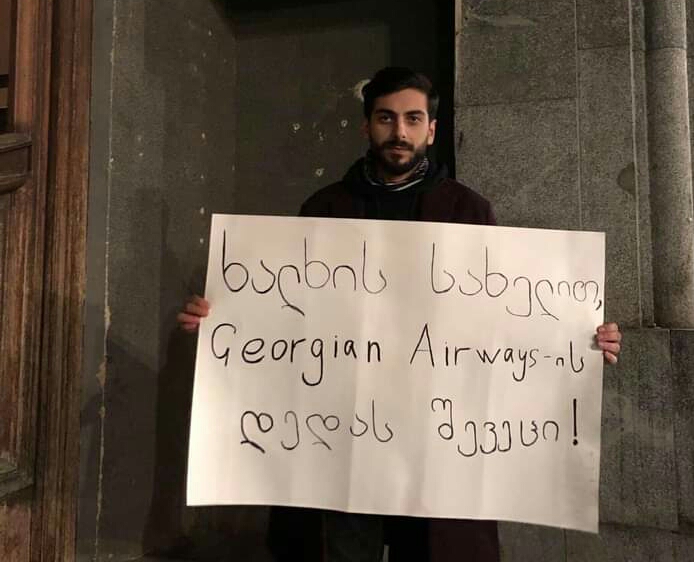 ხალხის სახელით,
Georgian Airways-ის
დედას შევეცი!